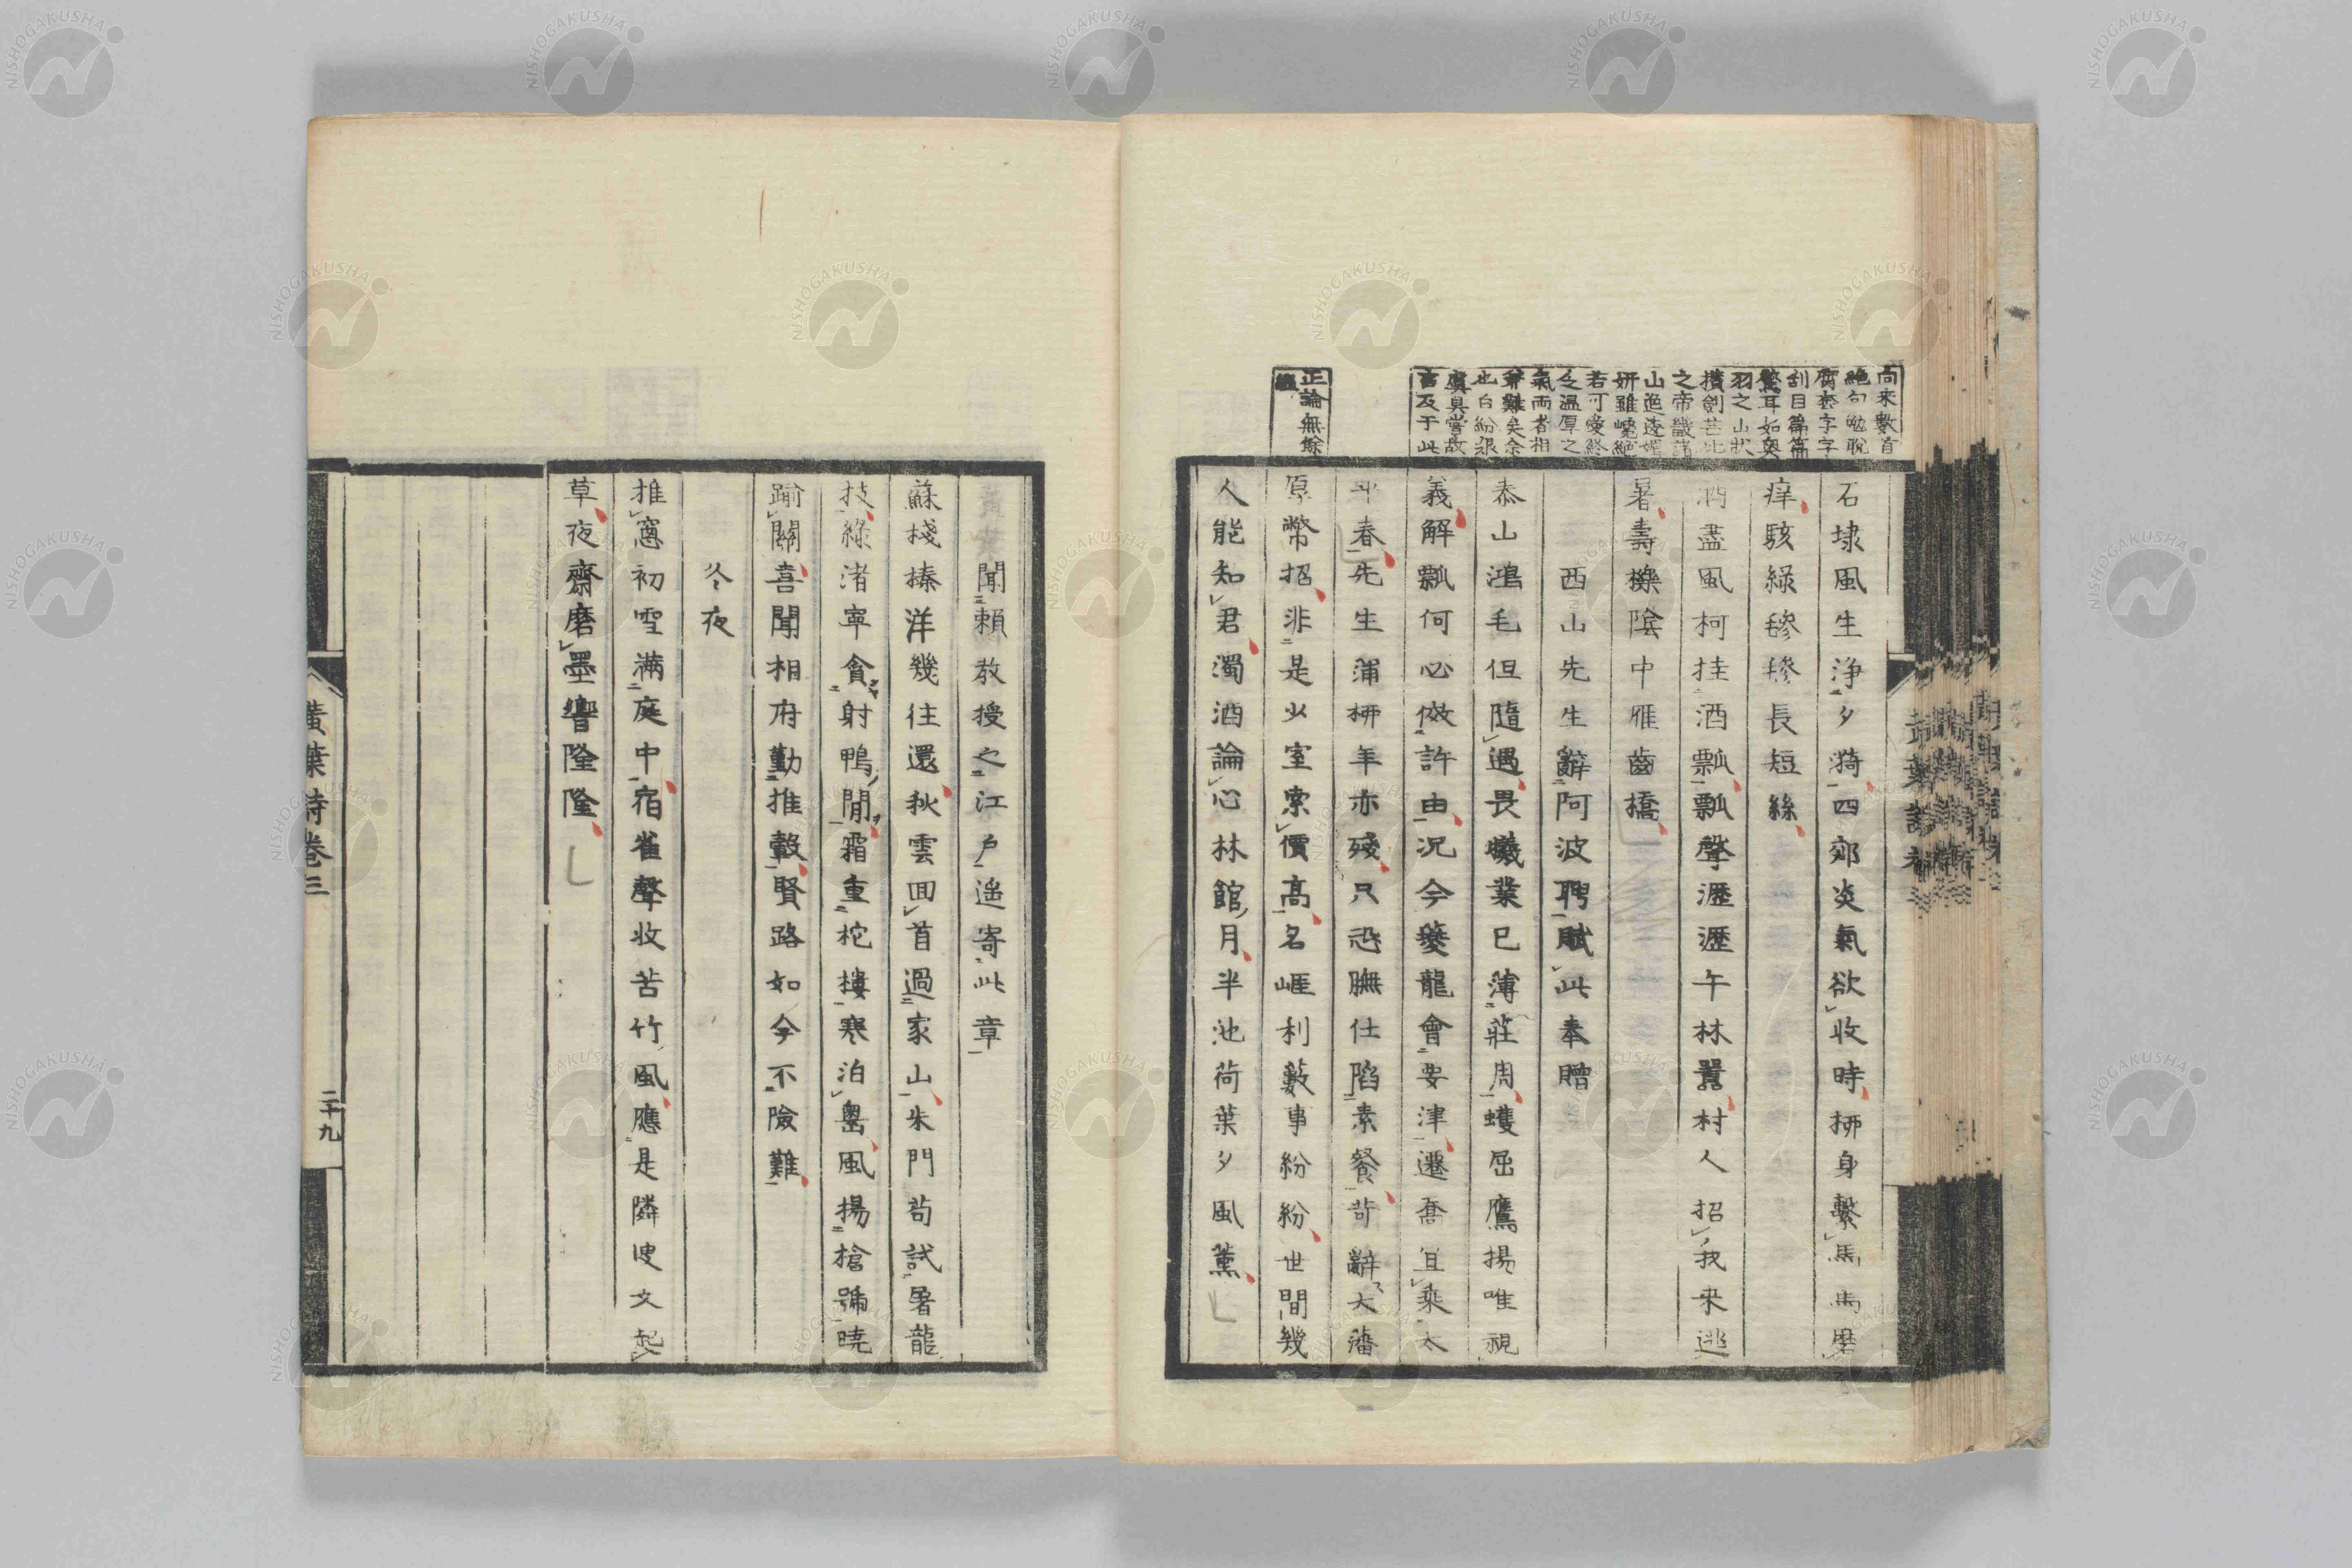 向来數首
絶句勉脱
腐套字字
刮目篇篇
驚耳如奥
羽之山状
攢劍甚比
之帝畿諸
山逸逶媚
妍雖嶢絶
若可愛終
乏温厚之
氣兩者相
兼難矣余
也白紛浪
虞其嘗故
言及于此
正論無餘
蘊
石埭風生浄夕漪四郊炎氣欲收時栁身繫馬馬磨
痒駭緑毿毿長短絲
酒盡風柯挂酒瓢瓢聲瀝瀝午林囂村人招我来逃
暑壽櫟陰中雁齒橋
西山先生辭阿波聘賦此奉贈
泰山鴻毛但隨遇畏犧業已薄莊周蠖屈鷹揚唯視
義解瓢何必倣許由况今夔龍會要津遷喬宜乘太
平春先生蒲栁年亦殘只恐膴仕陷素餐苛辭大藩
原幣招非是少室索價高名崕利藪事紛紛世間幾
人能知君濁酒論心林館月半池荷葉夕風薫
聞頼教授之江戸遥寄此章
蘇棧搸洋幾往還秋雲囬首過家山朱門苟試暑龍
技緑渚寧貪射鴨閒霜重柁樓寒泊曡風揚槍號曉
踰關喜聞相府勤推轂賢路如今不險難
冬夜
推窻初雪滿庭中宿雀聲收苦竹風應是隣叟文起
草夜齋磨墨響隆隆
黄葉詩巻三
二十九
NISHOGAKUSHA